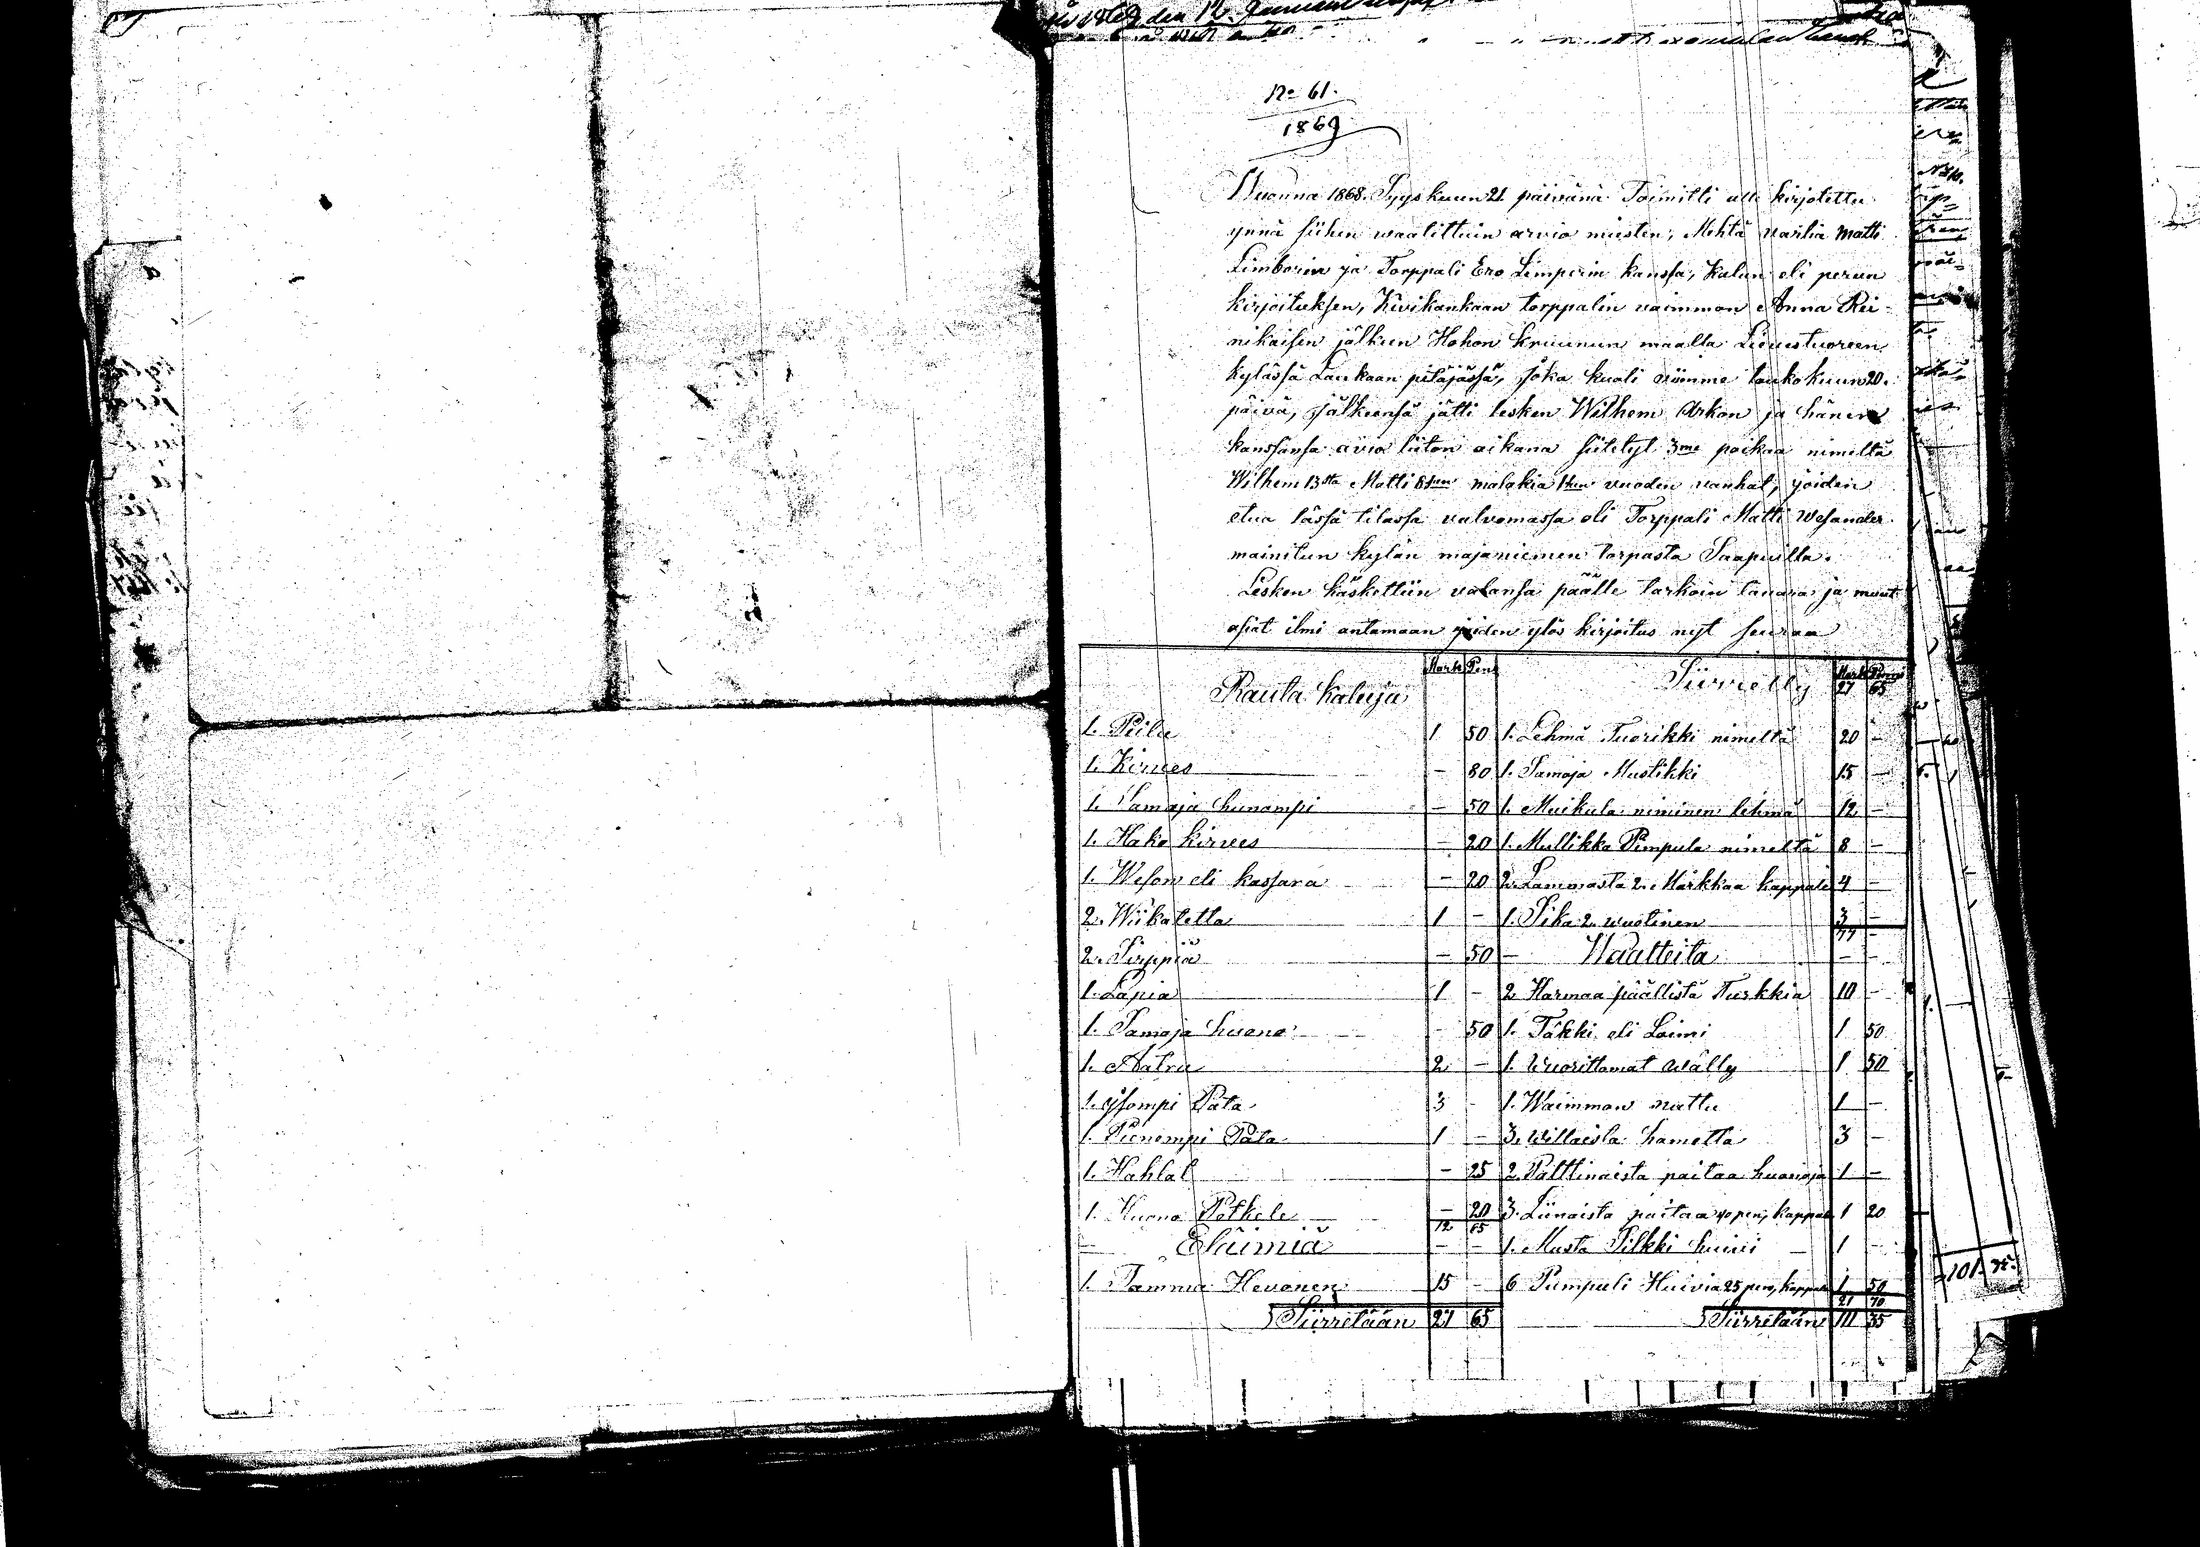 No 61.
1869
Wuonna 1868. Syyskuun 21 päivänä Toimitti alle kirjotettu
ynnä siihen waalittuin arvio miesten, Mehtä vartia Matti
Limborin ja Torppali Ero Limperin kanssa, Kalun eli perun
kirjoituksen, Kivikankaan torppalin vaimmon Anna Rei-
nikaisen jälkeen Hohon kruunun maalla Lievestuoreen
kylässä Laukaan pitäjässä, joka kuoli viimme toukokuun 20.
päivä, jälkeensä jätti lesken Wilhem Arkon ja hänen
kanssansa avio liiton aikana siitetyt 3me poikaa nimiltä
Wilhem 13sta Matti 8san malakia 1hen vuoden vanhat, joiden
etua tässä tilassa valvomassa oli Torppali Matti Wesander
mainitun kylän majaniemen torpasta Saapuilla.
Lesken käskettiin valansa päälle tarkoin tavara ja muut
asiat ilmi antamaan joiden ylös kirjoitus nyt seuraa
Rauta kaluja Mark Pen
1. Piilu 1 50
1. Kirves - 80
1. Samaja huonompi - 50
1. Hako kirves - 20
1. Weson eli kassara - 20
2. Wiikatetta 1 -
2. Sirppiä - 50
1. Lapia 1 -
1. Samaja huono - 50
1. Aatra 2 -
1. Isompi Pata 3 -
1. Pienempi Pata 1 -
1. Hahlat - 25
1. Huono Petkele - 20
12 65
Eläimiä - -
1. Tamma Hevonen 15 -
Siirretään 27 65
Siirretty Mark Penni
27 65
1. Lehmä Tuorikki nimeltä 20 -
1. Samaja Mustikki 15 -
1. Muikula niminen lehmä 12 -
1. Mullikka Pimpula nimeltä 8 -
2. Lammasta 2. Markkaa kappale 4 -
1. Sika 2. wuotinen 3 -
Waatteita - -
2 Harmaa päällistä Turkkia 10 -
1. Täkki eli Loimi 1 50
1. Wuorittamat wälly 1 50
1. Waimmon nuttu 1 -
3. willaista hametta 3 -
2. Palttinaista paitaa huonoja 1 -
3. Liinaista paitaa 40 pen, kappale 1 20
1. Musta Silkki huivi 1 -
6 Pumpuli Huivia 25 pen, kappale 1 50
21 70
Siirretään 111 35
101. 95.